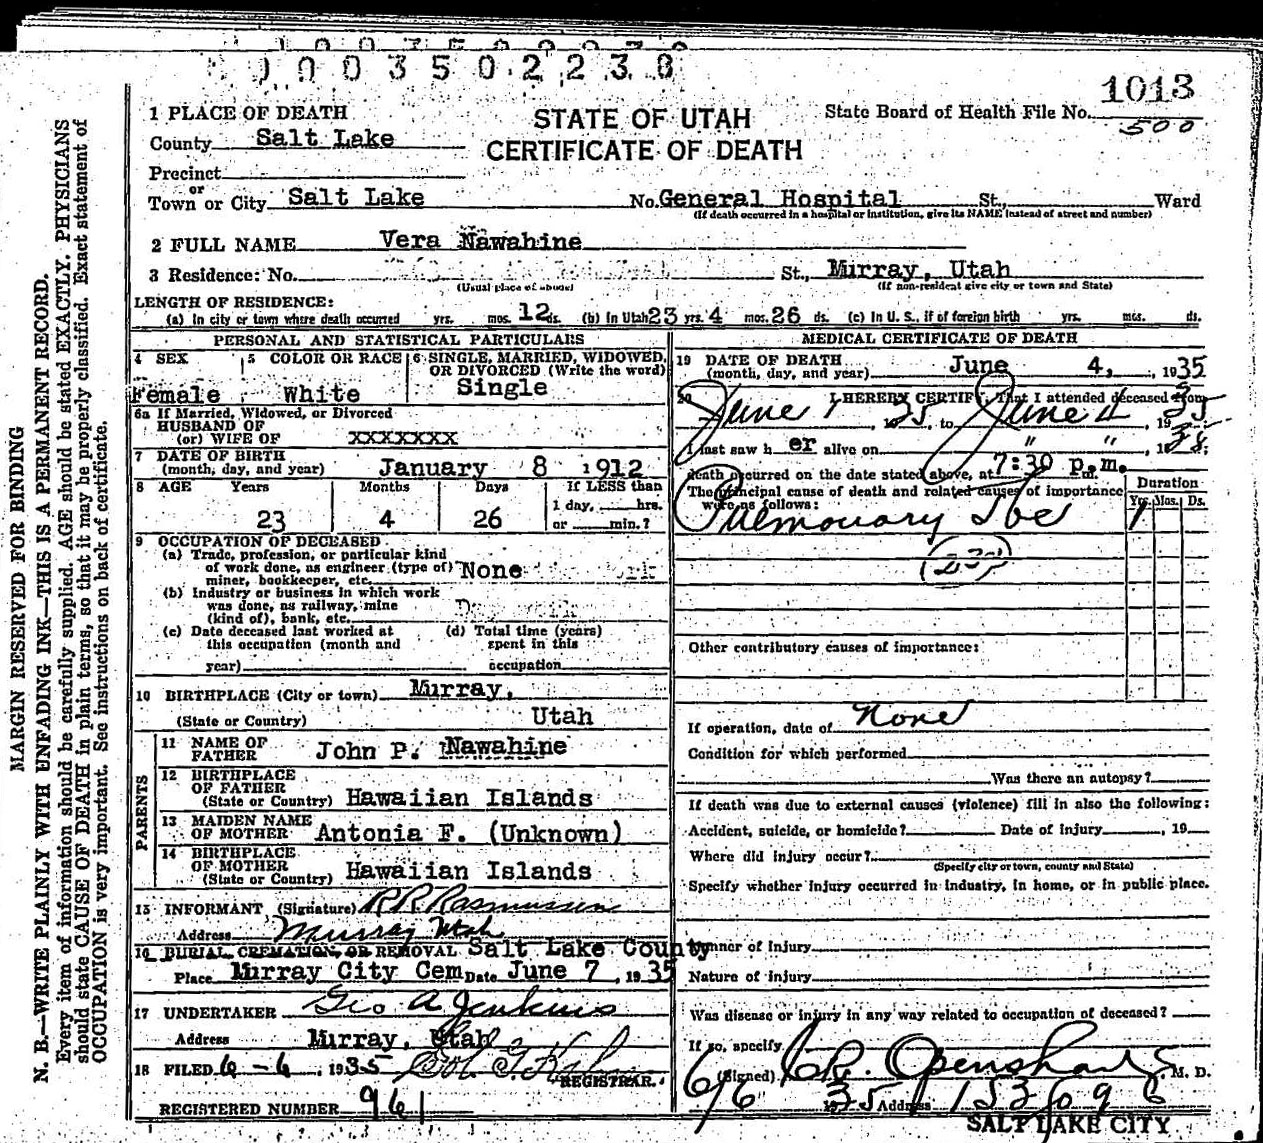 1003502230
1013
1 PLACE OF DEATH
STATE OF UTAH
CERTIFICATE OF DEATH
State Board of Health File No.
500
County Salt Lake
Precinct
or
Town or City Salt Lake No. General Hospital St., Ward
(If death occurred in a hospital or institution, give its NAME instead of street and number)
2 FULL NAME Vera Nawahine
3 Residence: No. St., Murray, Utah
(Usual place of abode) (If non-resident give city or town and State)
LENGTH OF RESIDENCE:
(a) In city or town where death occurred yrs. mos. 12 ds. (b) In Utah 23 yrs. 4 mos. 26 ds. (c) In U. S., if of foreign birth yrs. mos. ds.
PERSONAL AND STATISTICAL PARTICULARS
4 SEX 5 COLOR OR RACE 6 SINGLE, MARRIED, WIDOWED, OR DIVORCED (Write the word)
Female White Single
6a If Married, Widowed, or Divorced
HUSBAND OF
(or) WIFE OF XXXXXXX
7 DATE OF BIRTH
(month, day, and year) January 8 1912
8 AGE Years Months Days If LESS than
1 day, hrs.
23 4 26 or min.?
9 OCCUPATION OF DECEASED
(a) Trade, profession, or particular kind
of work done, as engineer (type of)
miner, bookkeeper, etc. None
(b) Industry or business in which work
was done, as railway, mine
(kind of), bank, etc.
(c) Date deceased last worked at
this occupation (month and
year)
(d) Total time (years)
spent in this
occupation
10 BIRTHPLACE (City or town) Murray,
(State or Country) Utah
PARENTS
11 NAME OF
FATHER John P. Nawahine
12 BIRTHPLACE
OF FATHER
(State or Country) Hawaiian Islands
13 MAIDEN NAME
OF MOTHER Antonia F. (Unknown)
14 BIRTHPLACE
OF MOTHER
(State or Country) Hawaiian Islands
15 INFORMANT (Signature) R R Rasmussen
Address Murray Utah
16 BURIAL, CREMATION, OR REMOVAL Salt Lake County
Place Murray City Cem Date June 7, 1935
17 UNDERTAKER Geo A Jenkins
Address Murray, Utah
18 FILED 6-6, 1935
REGISTRAR.
REGISTERED NUMBER 961
MEDICAL CERTIFICATE OF DEATH
19 DATE OF DEATH
(month, day, and year) June 4, 1935
20 I HEREBY CERTIFY, That I attended deceased from
June 1 1935, to June 4 1935
I last saw her alive on " " , 19
death occurred on the date stated above, at 7:30 p.m. m.
The principal cause of death and related causes of importance
were as follows:
Duration
Yrs. Mos. Ds.
Pulmonary Tbc 1
(23)
Other contributory causes of importance:
If operation, date of None
Condition for which performed
Was there an autopsy?
If death was due to external causes (violence) fill in also the following:
Accident, suicide, or homicide? Date of injury , 19
Where did injury occur?
(Specify city or town, county and State)
Specify whether injury occurred in industry, in home, or in public place.
Manner of injury
Nature of injury
Was disease or injury in any way related to occupation of deceased?
If so, specify
(Signed) Openshaw, M. D.
6/6 1935 Address
SALT LAKE CITY
MARGIN RESERVED FOR BINDING
N. B.—WRITE PLAINLY WITH UNFADING INK—THIS IS A PERMANENT RECORD.
Every item of information should be carefully supplied. AGE should be stated EXACTLY. PHYSICIANS
should state CAUSE OF DEATH in plain terms, so that it may be properly classified. Exact statement of
OCCUPATION is very important. See instructions on back of certificate.